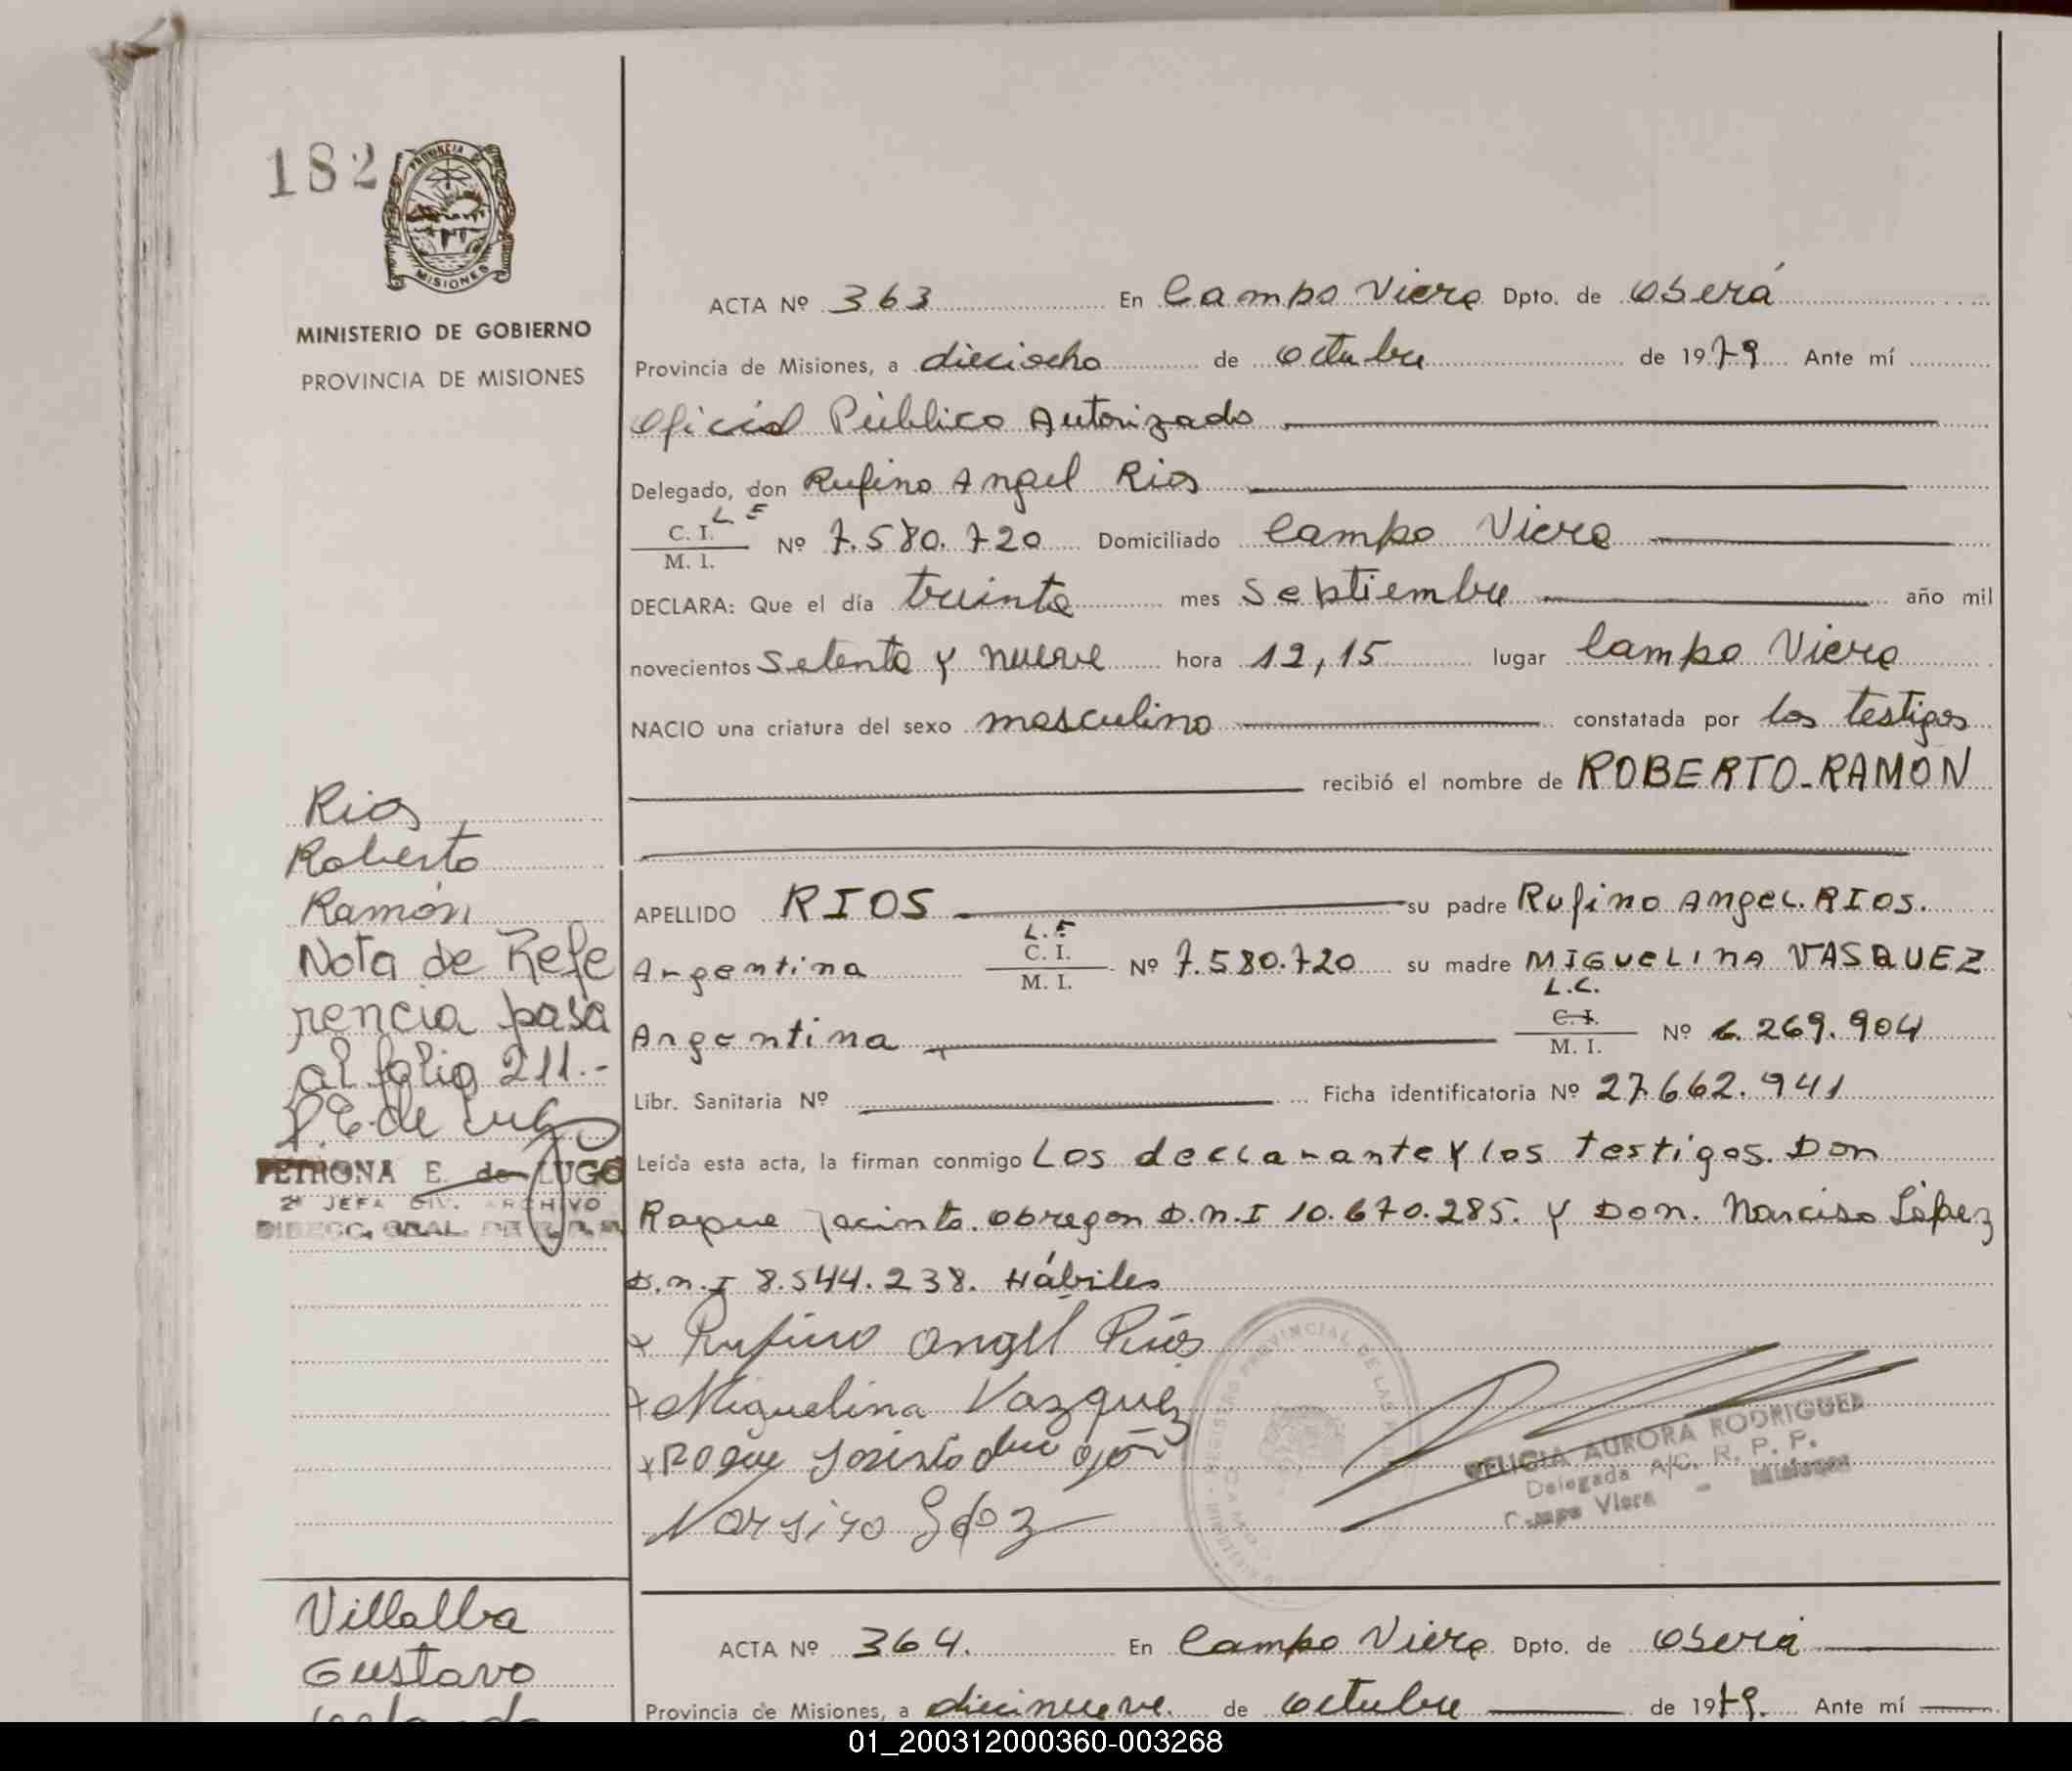 182
PROVINCIA DE
MISIONES
MINISTERIO DE GOBIERNO
PROVINCIA DE MISIONES
ACTA Nº 363 En Campo Viera Dpto. de Oberá
Provincia de Misiones, a dieciocho de octubre de 1979 Ante mí
Oficial Público Autorizado
Delegado, don Rufino Angel Rios
L E
C. I.
M. I.
Nº 7.580.720 Domiciliado Campo Viera
DECLARA: Que el día treinta mes septiembre año mil
novecientos setenta y nueve hora 12,15 lugar Campo Viera
NACIO una criatura del sexo masculino constatada por los testigos
recibió el nombre de ROBERTO-RAMÓN
Rios
Roberto
Ramón
Nota de Refe
rencia pasa
al folio 211.-
P.E. de Lugo
PETRONA E. de LUGO
2ª JEFA DIV. ARCHIVO
DIRECC. GRAL. DE R. P. P.
APELLIDO RIOS su padre Rufino Angel. RIOS.
Argentina L.E C. I. M. I. Nº 7.580.720 su madre MIGUELINA VASQUEZ
Argentina L.C. C. I. M. I. Nº 6.269.904
Libr. Sanitaria Nº Ficha identificatoria Nº 27.662.941
Leída esta acta, la firman conmigo Los declarante y los testigos. Don
Roque Jacinto Obregon D.N.I 10.670.285. y Don. Narciso López
D.N.I 8.544.238. Hábiles
x Rufino Angel Ríos
x Miguelina Vazquez
x Roque
Narsiso
REGISTRO PROVINCIAL DE LAS
FELICIA AURORA RODRIGUEZ
Delegada A/C. R. P. P.
Campo Viera - Misiones
Villalba
Gustavo
ACTA Nº 364. En Campo Viera Dpto. de Oberá
Provincia de Misiones, a diecinueve. de octubre de 1979. Ante mí
01_200312000360-003268